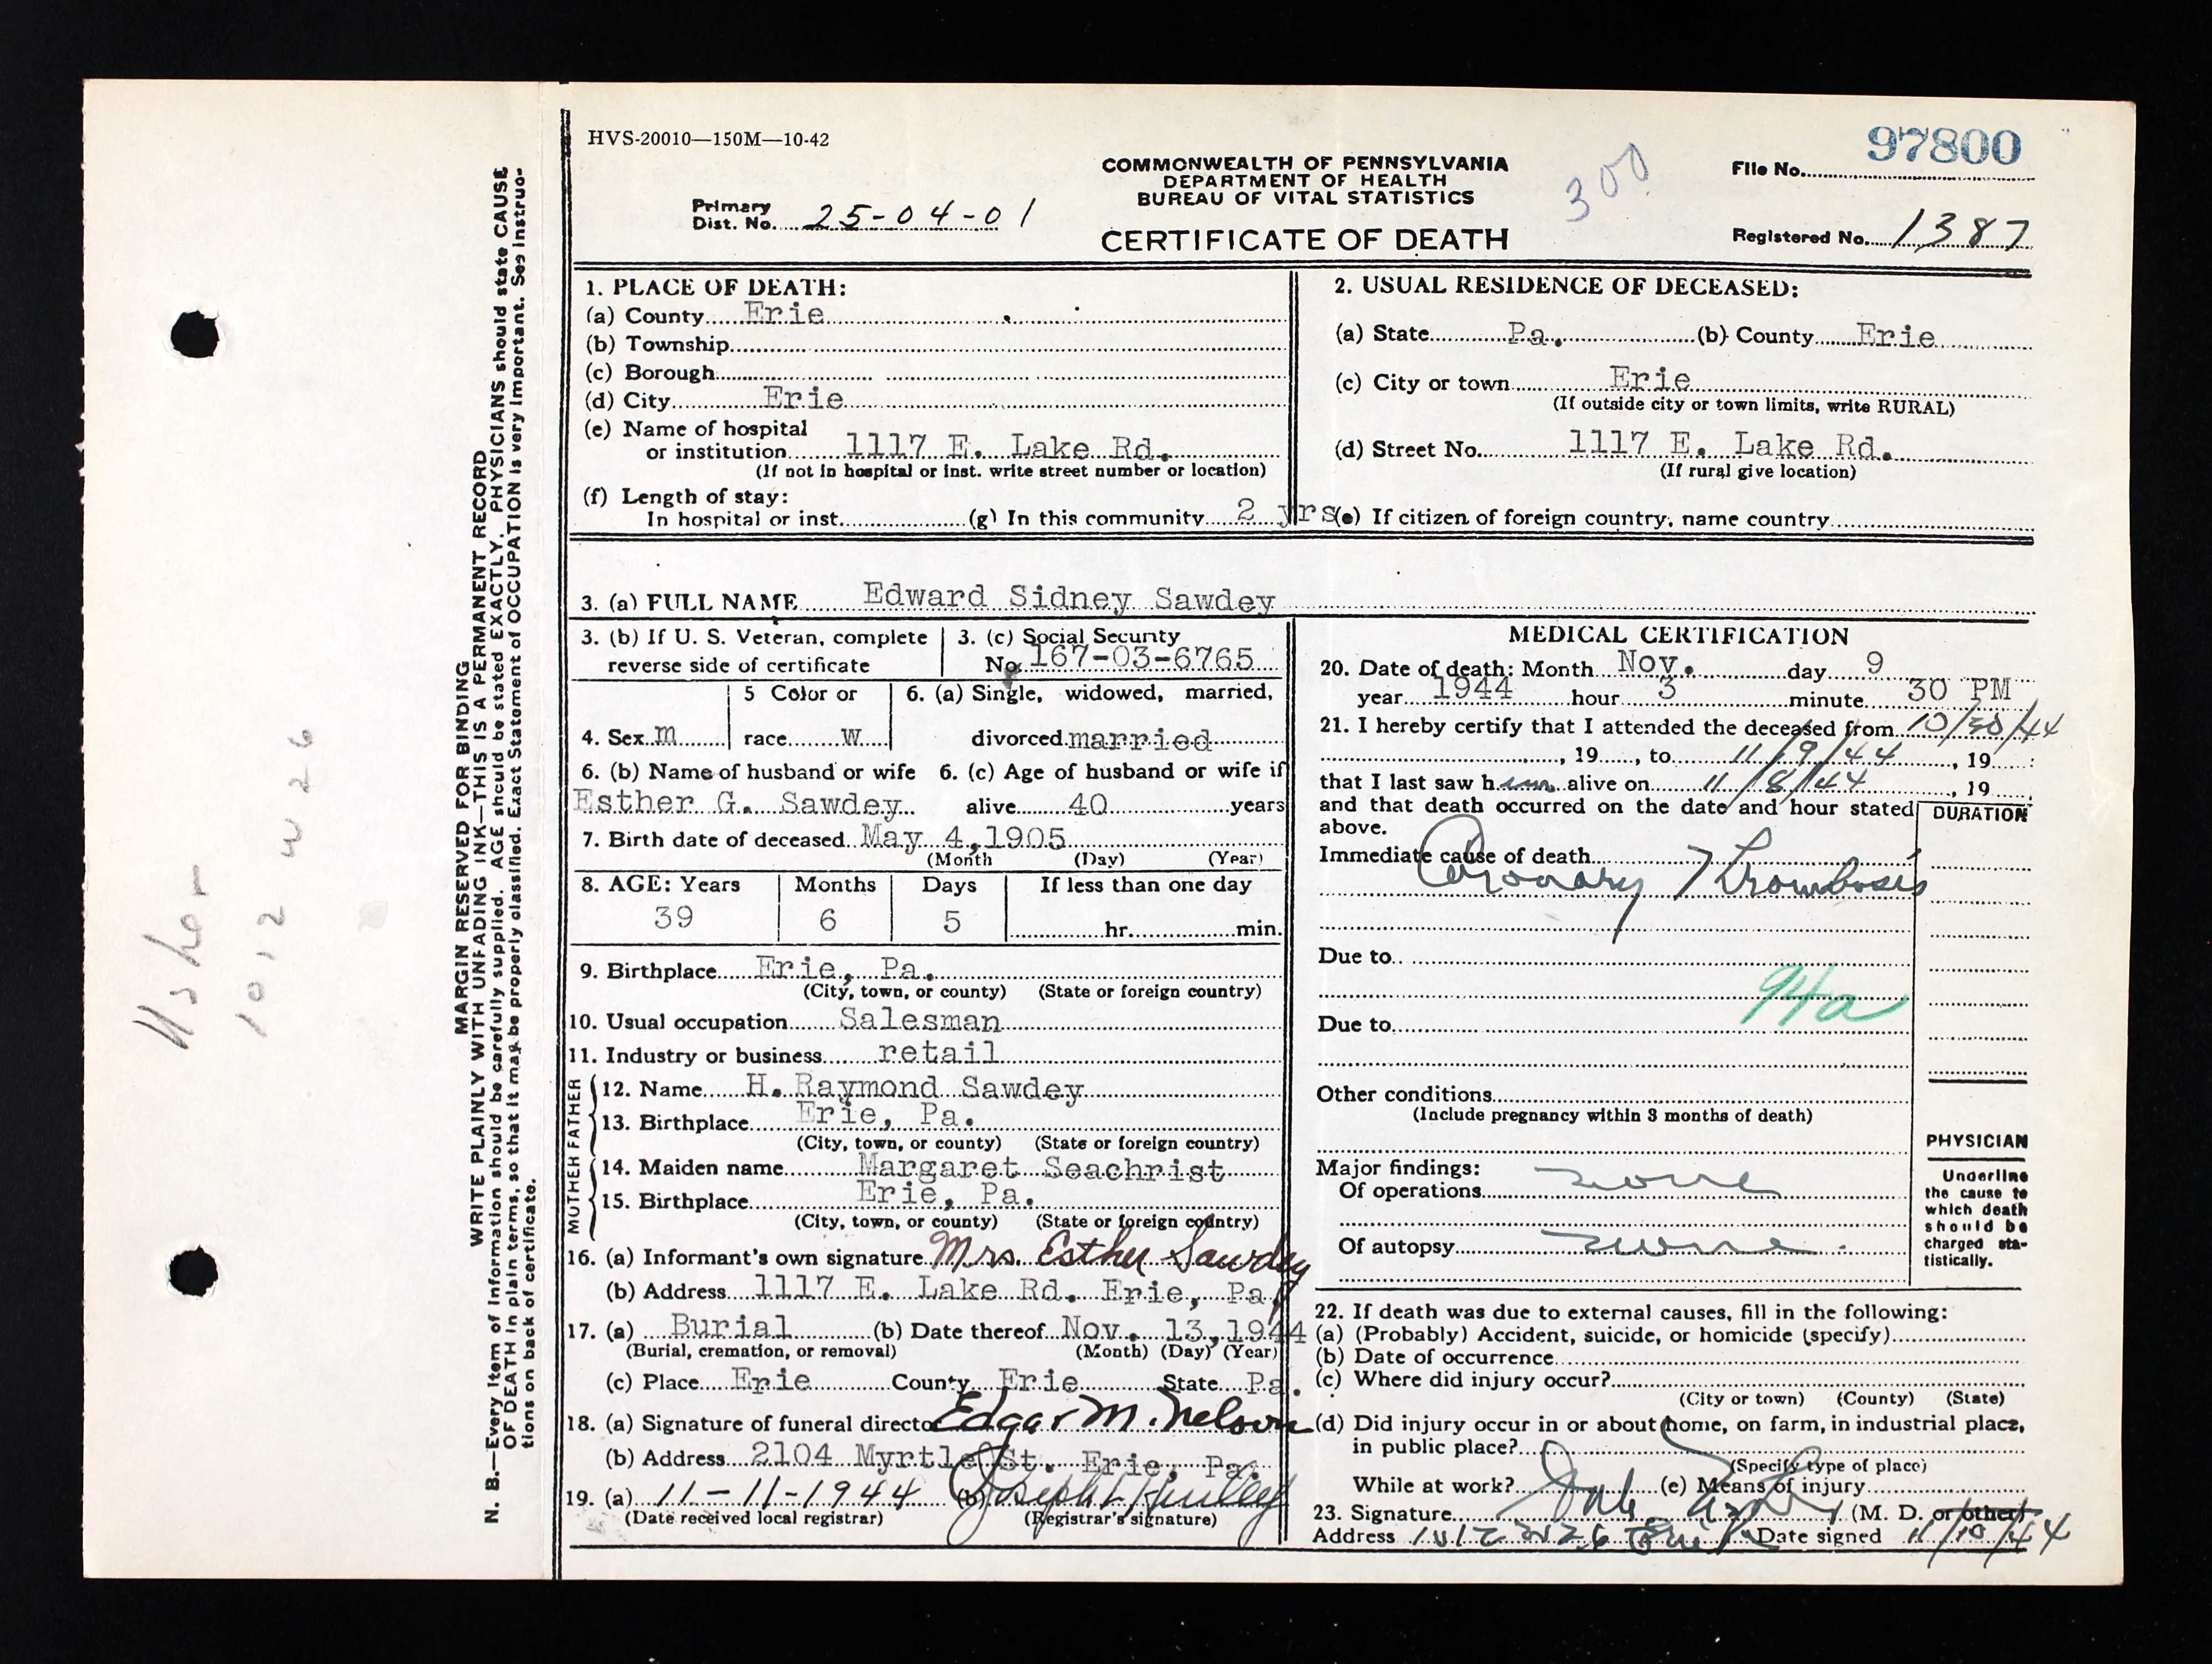 HVS-20010—150M—10-42
97800
COMMONWEALTH OF PENNSYLVANIA
DEPARTMENT OF HEALTH
BUREAU OF VITAL STATISTICS
300
File No.
Primary
Dist. No. 25-04-01
CERTIFICATE OF DEATH
Registered No. 1387
1. PLACE OF DEATH:
(a) County Erie
(b) Township
(c) Borough
(d) City Erie
(e) Name of hospital
or institution 1117 E. Lake Rd.
(If not in hospital or inst. write street number or location)
(f) Length of stay:
In hospital or inst. (g) In this community 2 yrs
2. USUAL RESIDENCE OF DECEASED:
(a) State Pa. (b) County Erie
(c) City or town Erie
(If outside city or town limits, write RURAL)
(d) Street No. 1117 E. Lake Rd.
(If rural give location)
(e) If citizen of foreign country, name country
3. (a) FULL NAME Edward Sidney Sawdey
3. (b) If U. S. Veteran, complete
reverse side of certificate
3. (c) Social Security
No. 167-03-6765
4. Sex m
5 Color or
race W
6. (a) Single, widowed, married,
divorced married
6. (b) Name of husband or wife
Esther G. Sawdey
6. (c) Age of husband or wife if
alive 40 years
7. Birth date of deceased May 4,1905
(Month (Day) (Year)
8. AGE: Years Months Days If less than one day
39 6 5 hr. min.
9. Birthplace Erie, Pa.
(City, town, or county) (State or foreign country)
10. Usual occupation Salesman
11. Industry or business retail
FATHER
12. Name H. Raymond Sawdey
13. Birthplace Erie, Pa.
(City, town, or county) (State or foreign country)
MOTHER
14. Maiden name Margaret Seachrist
15. Birthplace Erie, Pa.
(City, town, or county) (State or foreign country)
16. (a) Informant's own signature Mrs. Esther Sawdey
(b) Address 1117 E. Lake Rd. Erie, Pa.
17. (a) Burial (b) Date thereof Nov. 13,1944
(Burial, cremation, or removal) (Month) (Day) (Year)
(c) Place Erie County Erie State Pa.
18. (a) Signature of funeral director Edgar M. Nelson
(b) Address 2104 Myrtle St. Erie, Pa.
19. (a) 11-11-1944 (b) Joseph
(Date received local registrar) (Registrar's signature)
MEDICAL CERTIFICATION
20. Date of death: Month Nov. day 9
year 1944 hour 3 minute 30 PM
21. I hereby certify that I attended the deceased from 10/30/44
, 19 , to 11/9/44 , 19 :
that I last saw him alive on 11/8/44 , 19 ,
and that death occurred on the date and hour stated
above.
DURATION
Immediate cause of death
Coronary Thrombosis
Due to
94a
Due to
Other conditions
(Include pregnancy within 3 months of death)
Major findings:
Of operations none
Of autopsy none
PHYSICIAN
Underline
the cause to
which death
should be
charged sta-
tistically.
22. If death was due to external causes, fill in the following:
(a) (Probably) Accident, suicide, or homicide (specify)
(b) Date of occurrence
(c) Where did injury occur?
(City or town) (County) (State)
(d) Did injury occur in or about home, on farm, in industrial place,
in public place?
(Specify type of place)
While at work? (e) Means of injury
23. Signature (M. D. or other)
Address 1012 W 26 Erie Pa Date signed 11/10/44
MARGIN RESERVED FOR BINDING
WRITE PLAINLY WITH UNFADING INK—THIS IS A PERMANENT RECORD
N. B.—Every item of information should be carefully supplied. AGE should be stated EXACTLY. PHYSICIANS should state CAUSE
OF DEATH in plain terms, so that it may be properly classified. Exact Statement of OCCUPATION is very important. See instruc-
tions on back of certificate.
1012 W 26